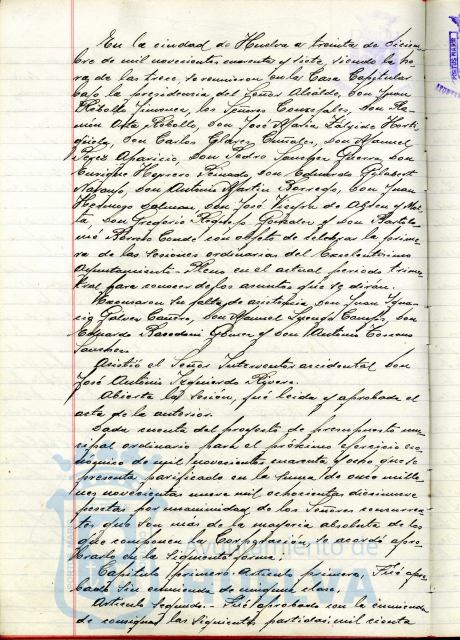 En la ciudad de Huelva a treinta de Diciem-
bre de mil novecientos cuarenta y siete, siendo la ho-
ra de las trece, se reunieron en la Casa Capitular
bajo la presidencia del Señor Alcalde, Don Juan
Rebollo Jimenez, los Señores Concejales, Don Ra-
món Rebollo, Don José María
Don Carlos Don Manuel
Perez Aparicio, Don Pedro Sanchez Guerra, Don
Enrique Don Eduardo Gilabert
Don Antonio Martin Borrego, Don Juan
Don José
Don Gregorio Gonzalez y Don Bartolo-
mé Borrero Conde con objeto de celebrar la prime-
ra de las sesiones ordinarias del Excelentísimo
Ayuntamiento Pleno en el actual periodo trimes-
tral para conocer de los asuntos que se dirán.
Excusaron su falta de asistencia, Don Juan Igna-
cio Galvez Don Manuel Don
Eduardo Gómez y Don Antonio Toscano
Sanchez.
Asistió el Señor Interventor accidental Don
José Antonio Izquierdo
Abierta la sesión, fué leida y aprobada el
acta de la anterior.
Dada cuenta del proyecto de presupuesto mu-
nicipal ordinario para el próximo ejercicio eco-
nómico de mil novecientos cuarenta y ocho que se
presenta en la suma de once millo-
nes novecientas nueve mil ochocientas diecinueve
pesetas por unanimidad de los Señores concurren-
tes que son más de la mayoria absoluta de los
que componen la Corporación, se acordó apro-
barlo en la siguiente forma:
Capitulo primero Articulo primero, Fué apro-
bado sin enmienda de ninguna clase.
Articulo segundo.- Fué aprobado con la enmienda
de consignar las siguientes partidas: mil ciento
Ayuntamiento de
HUELVA